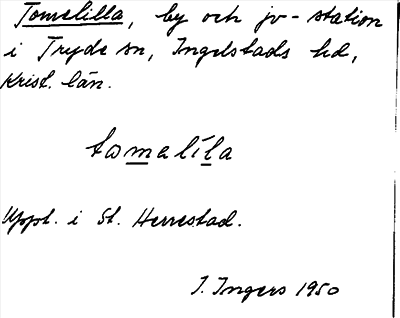 Tomelilla, by och jv-station
i Tryde sn, Ingelstads hd,
Krist. län.
tomelila
Uppt. i St. Herrestad.
I. Ingers 1950